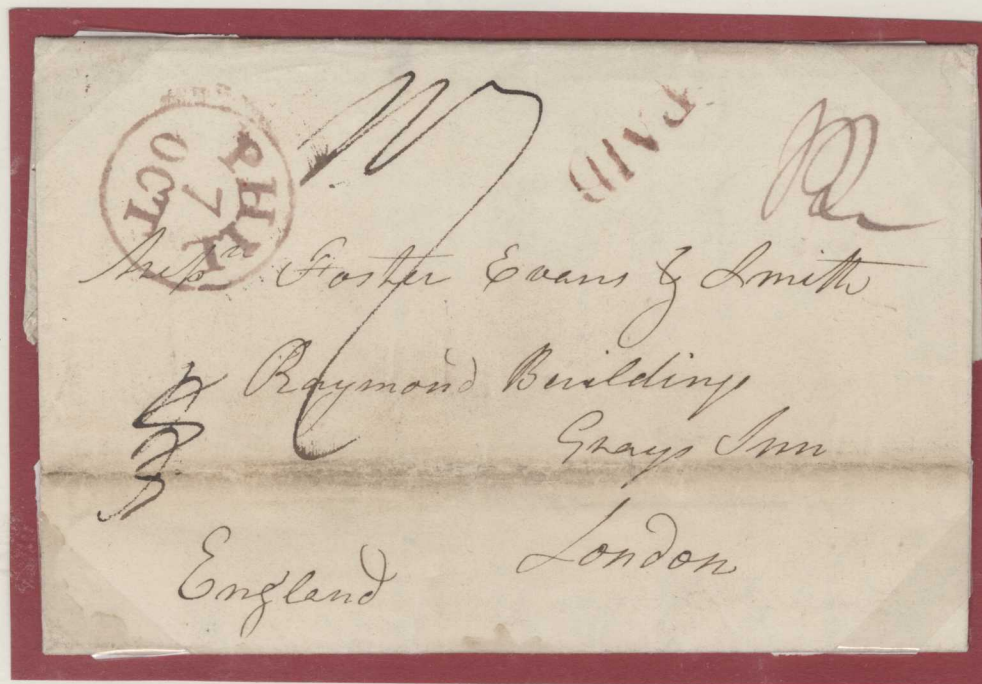 PHI
7
OCT
PAID
Messrs Foster Evans & Smith
Raymond Buildings
Grays Inn
London
England